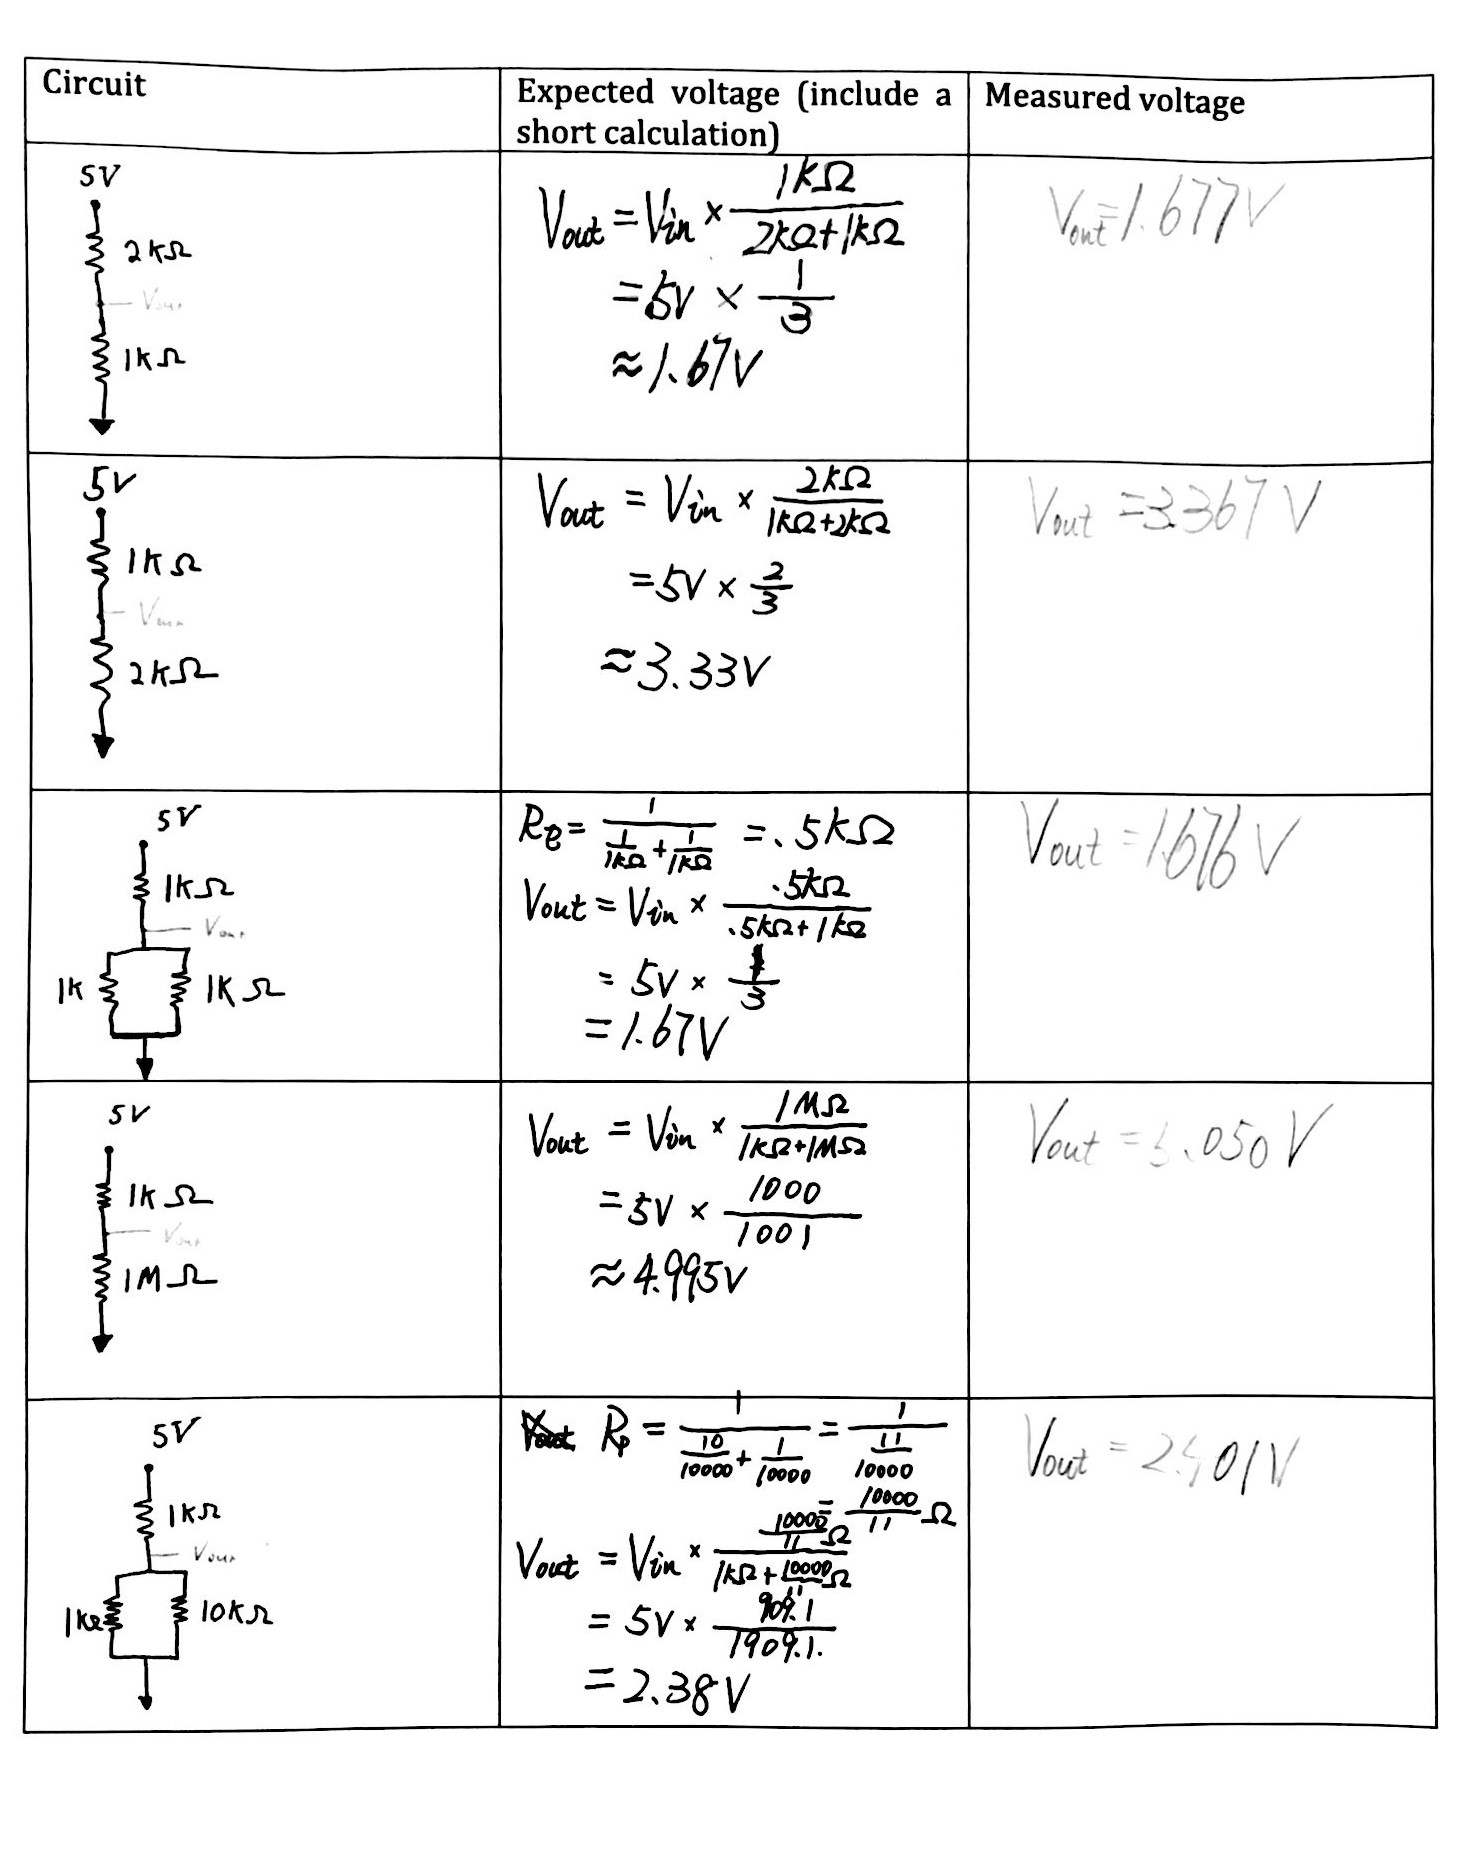 Circuit
Expected voltage (include a short calculation)
Measured voltage
5V
2kΩ
Vout
1kΩ
Vout = Vin × 1kΩ / 2kΩ+1kΩ
= 5V × 1/3
≈ 1.67V
Vout = 1.677V
5V
1kΩ
2kΩ
Vout = Vin × 2kΩ / 1kΩ+2kΩ
= 5V × 2/3
≈ 3.33V
Vout = 3.367V
5V
1kΩ
Vout
1K
1KΩ
= 1 / 1/1kΩ + 1/1kΩ = .5kΩ
Vout = Vin × .5kΩ / .5kΩ+1kΩ
= 5V × 1/3
= 1.67V
Vout = 1.676V
5V
1kΩ
Vout
1MΩ
Vout = Vin × 1MΩ / 1kΩ+1MΩ
= 5V × 1000/1001
≈ 4.995V
Vout = 5.050V
5V
1kΩ
Vout
1kΩ
10kΩ
Rp = 1 / 10/10000 + 1/10000 = 1 / 11/10000
= 10000/11 Ω
Vout = Vin × 10000/11 Ω / 1kΩ + 10000/11 Ω
= 5V × 909.1 / 1909.1.
= 2.38V
Vout =